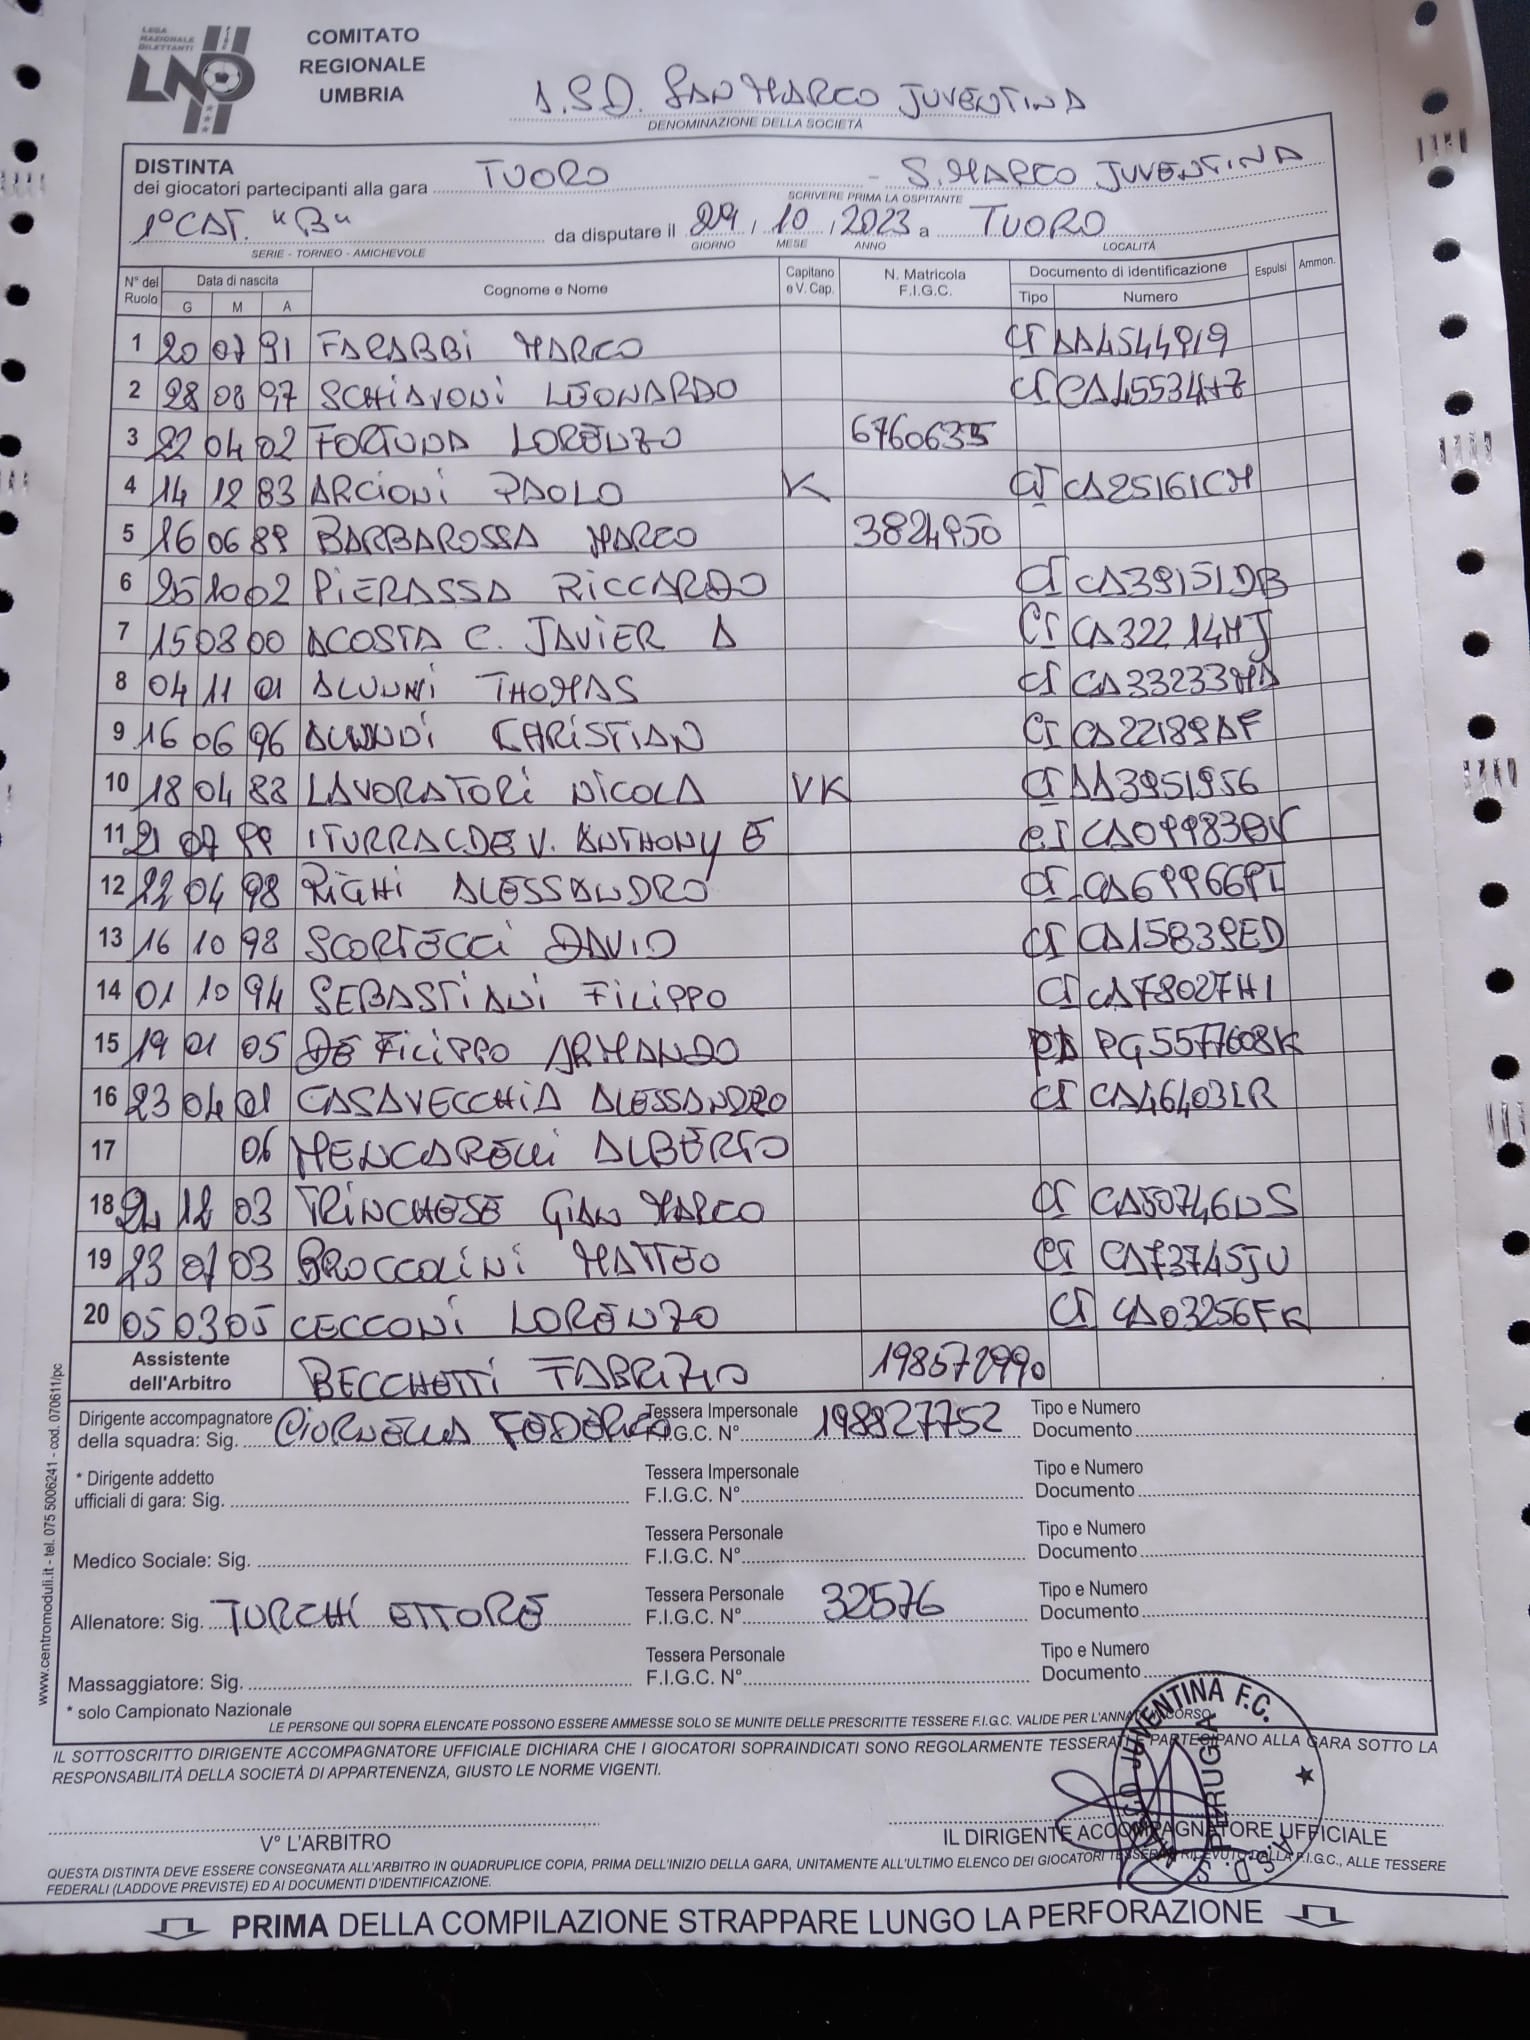 LEGA NAZIONALE DILETTANTI
LND
COMITATO
REGIONALE
UMBRIA
A.S.D. SAN MARCO JUVENTINA
DENOMINAZIONE DELLA SOCIETÀ
DISTINTA
dei giocatori partecipanti alla gara TUORO - S. MARCO JUVENTINA
SCRIVERE PRIMA LA OSPITANTE
1° CAT. "B" da disputare il 29 / 10 / 2023 a TUORO
SERIE - TORNEO - AMICHEVOLE GIORNO MESE ANNO LOCALITÀ
N° del Ruolo Data di nascita G M A Cognome e Nome Capitano e V. Cap. N. Matricola F.I.G.C. Documento di identificazione Tipo Numero Espulsi Ammon.
1 20 07 91 FARABBI MARCO CI AA4544919
2 28 08 97 SCHIAVONI LEONARDO CI
3 22 04 02 FORTUNA LORENZO 6760635
4 14 12 83 ARCIONI PAOLO K CI CA25161CM
5 16 06 89 BARBAROSSA MARCO 3824950
6 25 10 02 PIERASSA RICCARDO CI CA39151DB
7 15 08 00 ACOSTA C. JAVIER A CI CA32214MJ
8 04 11 01 ALUNNI THOMAS CI CA33233MA
9 16 06 96 ALUNNI CHRISTIAN CI CA22189AF
10 18 04 88 LAVORATORI NICOLA VK CI AA3951956
11 21 07 99 ITURRALDE V. ANTHONY E CI
12 22 04 98 RIGHI ALESSANDRO CI CA69966PI
13 16 10 98 SCORTECCI DAVID CI CA15839ED
14 01 10 94 SEBASTIANI FILIPPO CI CA78027HI
15 19 01 05 DE FILIPPO ARMANDO PA PG5577608K
16 23 04 01 CASAVECCHIA ALESSANDRO CI CA46403LR
17 06 MENCARELLI ALBERTO
18 12 03 TRINCHESE GIAN MARCO CI CA50746DS
19 23 07 03 BROCCOLINI MATTEO CI CA73745JU
20 05 03 05 CECCONI LORENZO CI CA03256FK
Assistente dell'Arbitro BECCHETTI FABRIZIO 198572990
Dirigente accompagnatore Tessera Impersonale Tipo e Numero
della squadra: Sig. CIORNELLA FEDERICO F.I.G.C. N° 198827752 Documento
* Dirigente addetto Tessera Impersonale Tipo e Numero
ufficiali di gara: Sig. F.I.G.C. N° Documento
Tessera Personale Tipo e Numero
Medico Sociale: Sig. F.I.G.C. N° Documento
Tessera Personale Tipo e Numero
Allenatore: Sig. TURCHI ETTORE F.I.G.C. N° 32576 Documento
Tessera Personale Tipo e Numero
Massaggiatore: Sig. F.I.G.C. N° Documento
* solo Campionato Nazionale
LE PERSONE QUI SOPRA ELENCATE POSSONO ESSERE AMMESSE SOLO SE MUNITE DELLE PRESCRITTE TESSERE F.I.G.C. VALIDE PER L'ANNATA IN CORSO.
IL SOTTOSCRITTO DIRIGENTE ACCOMPAGNATORE UFFICIALE DICHIARA CHE I GIOCATORI SOPRAINDICATI SONO REGOLARMENTE TESSERATI E PARTECIPANO ALLA GARA SOTTO LA
RESPONSABILITÀ DELLA SOCIETÀ DI APPARTENENZA, GIUSTO LE NORME VIGENTI.
V° L'ARBITRO IL DIRIGENTE ACCOMPAGNATORE UFFICIALE
A.S.D. S. MARCO JUVENTINA F.C.
PERUGIA
QUESTA DISTINTA DEVE ESSERE CONSEGNATA ALL'ARBITRO IN QUADRUPLICE COPIA, PRIMA DELL'INIZIO DELLA GARA, UNITAMENTE ALL'ULTIMO ELENCO DEI GIOCATORI TESSERATI RICEVUTO DALLA F.I.G.C., ALLE TESSERE
FEDERALI (LADDOVE PREVISTE) ED AI DOCUMENTI D'IDENTIFICAZIONE.
PRIMA DELLA COMPILAZIONE STRAPPARE LUNGO LA PERFORAZIONE
www.centromoduli.it - tel. 075 5006241 - cod. 070611/pc